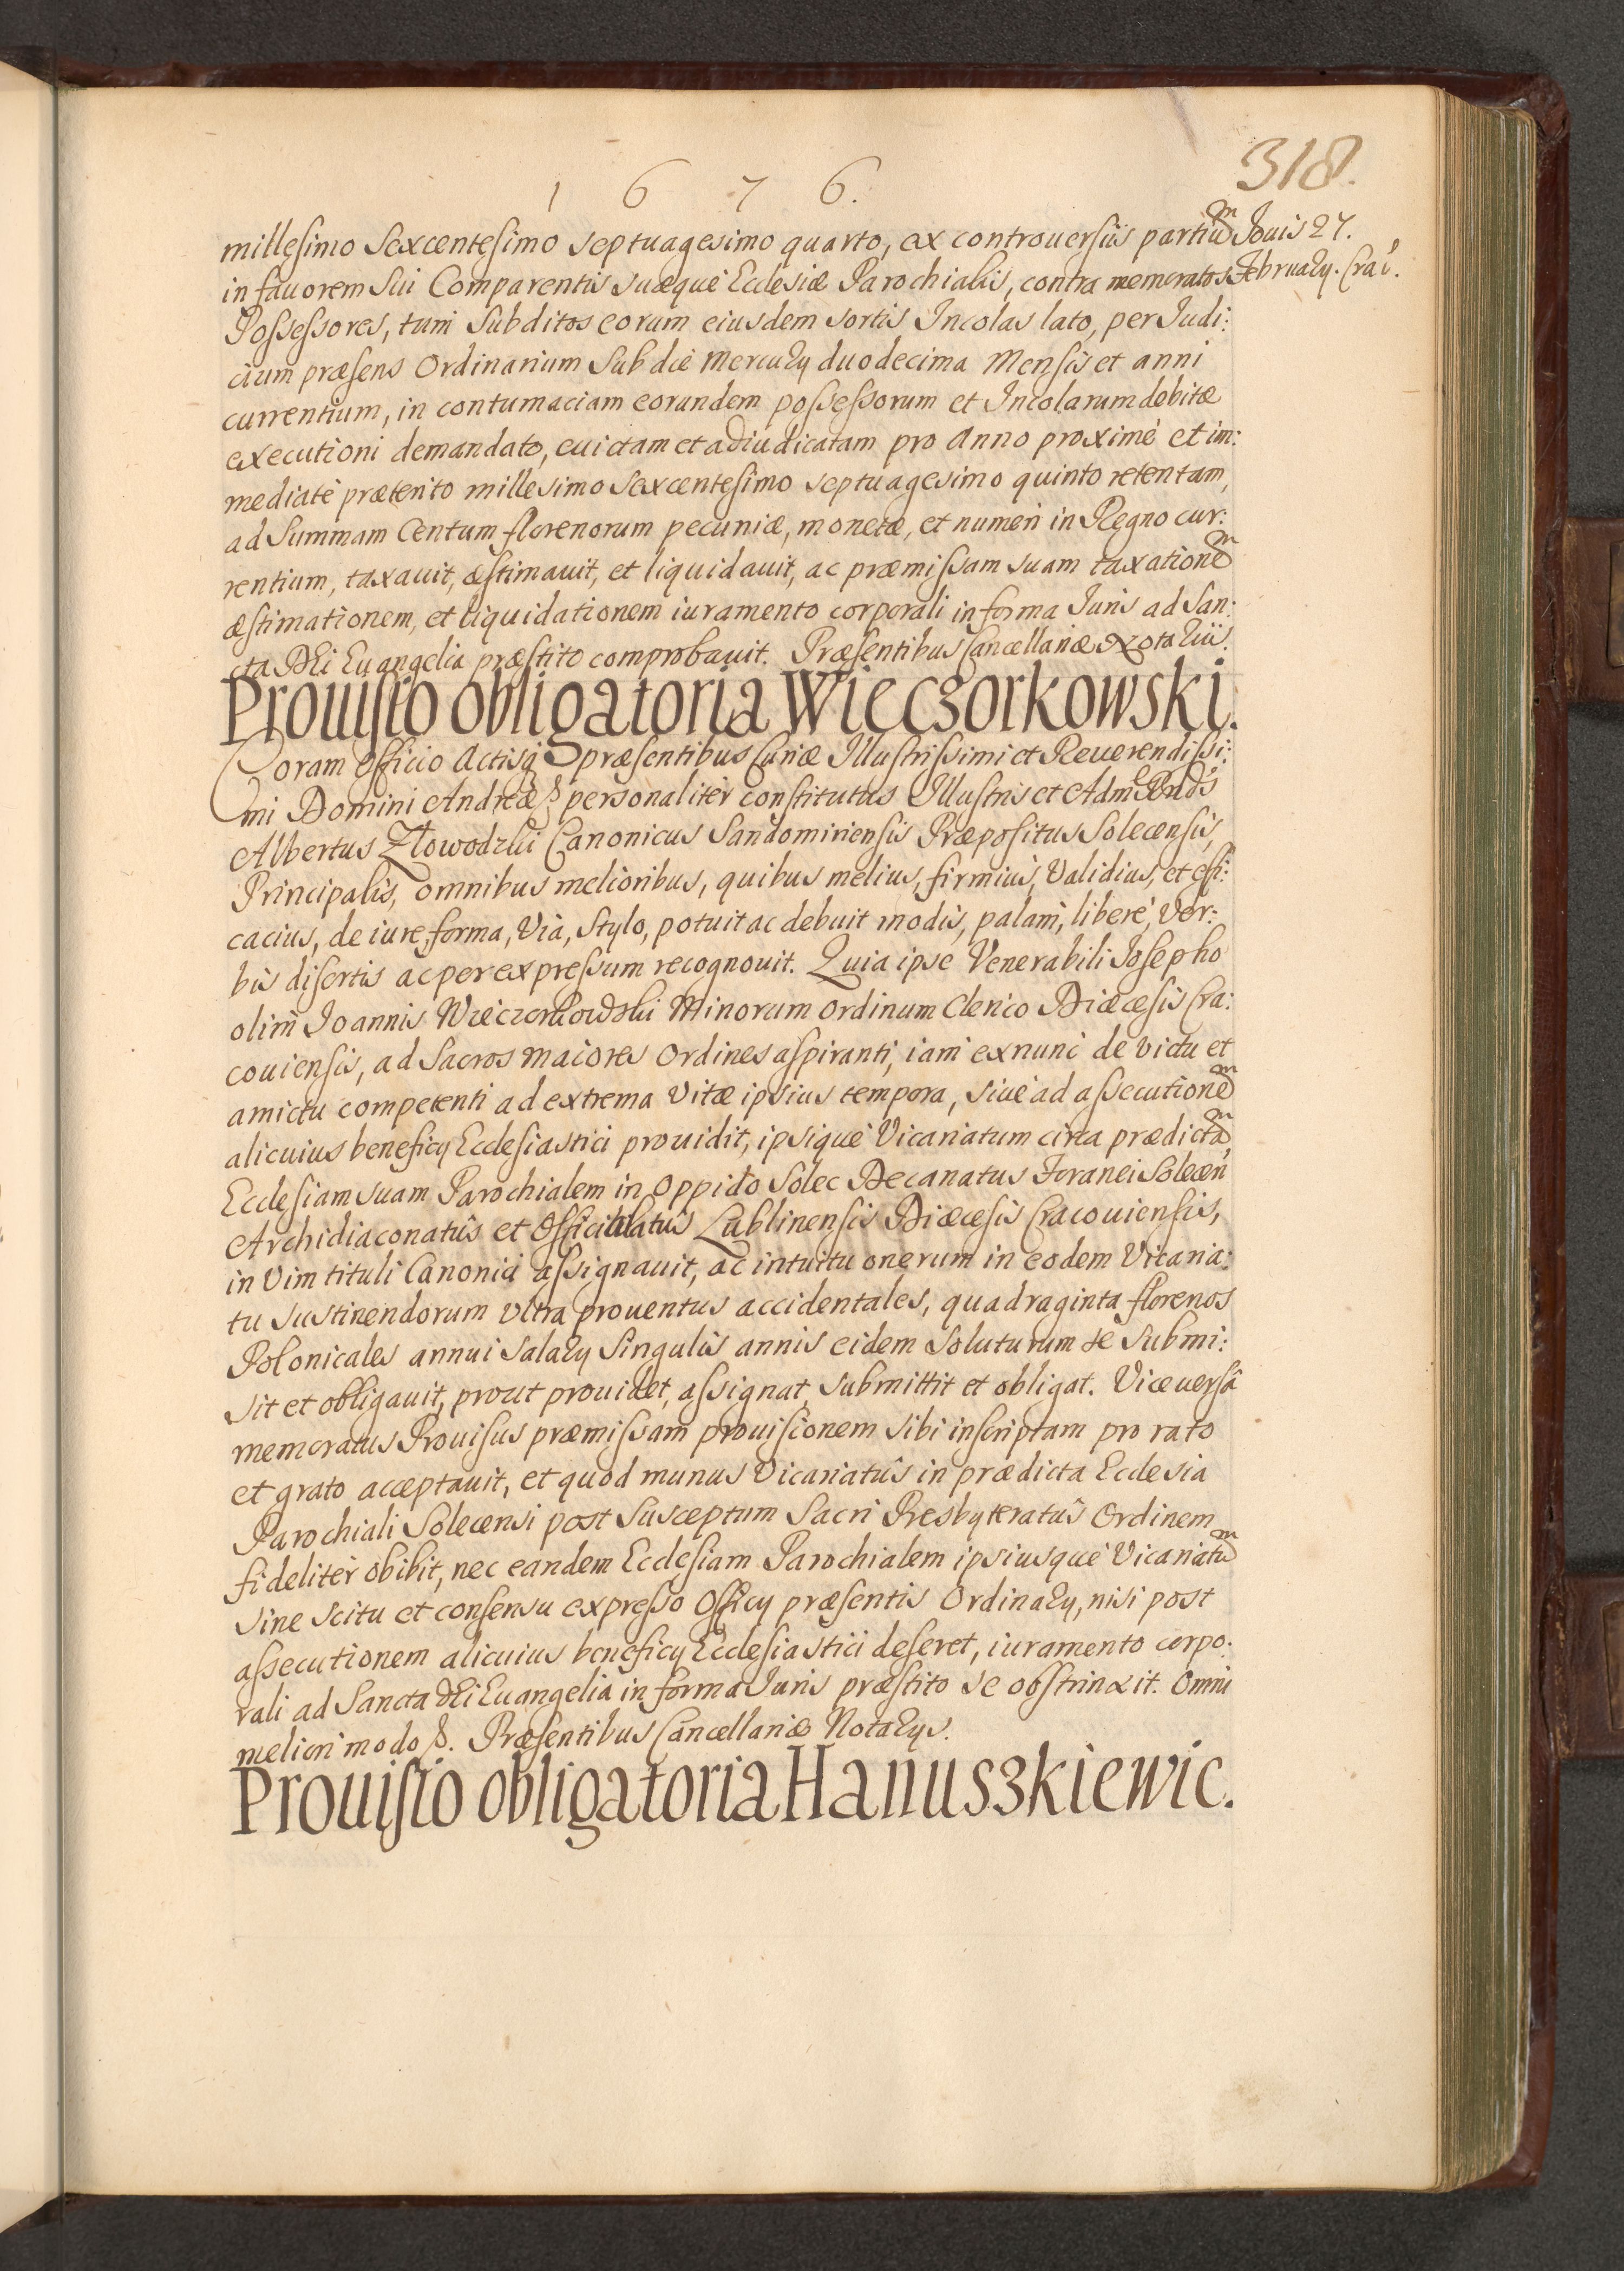 1676.
318.
Jouis 27.
February. Crac̄.
millesimo Sexcentesimo septuagesimo quarto, ex controuersiis partiuᵐ
in fauorem sui Comparentis suæque Ecclesiæ Parochialis, contra memoratos
Possessores, tum Subditos eorum eiusdem sortis Incolas lato, per Judi:
cium præsens Ordinarium sub die Mercury duodecima Mensis et anni
currentium, in contumaciam eorundem possessorum et Incolarum debitæ
executioni demandato, euictam et adiudicatam pro Anno proximè et im:
mediatè præterito millesimo Sexcentesimo septuagesimo quinto retentam,
ad Summam Centum florenorum pecuniæ, monetæ, et numeri in Regno cur:
rentium, taxauit, æstimauit, et liquidauit, ac præmissam suam taxationeᵐ
æstimationem, et liquidationem iuramento corporali in forma Juris ad San:
cta Dei Euangelia præstito comprobauit. Præsentibus Cancellariæ Notariis.
Prouisio obligatoria Wieczorkowski.
Coram Officio Actisq præsentibus Curiæ Illustrissimi et Reuerendissi:
mi Domini Andreæ &c personaliter constitutus Illustris et Adm Rnds
Albertus Złowodzki Canonicus Sandomiriensis Præpositus Solecensis,
Principalis, omnibus melioribus, quibus melius, firmius, validius, et effi:
cacius, de iure, forma, via, stylo, potuit ac debuit modis, palam, liberè, ver:
bis disertis ac per expressum recognouit. Quia ipse Venerabili Josepho
olim Joannis Wieczorkowski Minorum Ordinum Clerico Diæcesis Cra:
couiensis, ad Sacros maiores Ordines aspiranti, iam ex nunc de victu et
amictu competenti ad extrema vitæ ipsius tempora, siue ad assecutioneᵐ
alicuius beneficy Ecclesiastici prouidit, ipsique Vicariatum circa prædictaᵐ
Ecclesiam suam Parochialem in Oppido Solec Decanatus Foranei Solecen̄
Archidiaconatûs et Officialatûs Lublinensis Diæcesis Cracouiensis,
in vim tituli Canonici assignauit, ac intuitu onerum in eodem Vicaria:
tu sustinendorum vltra prouentus accidentales, quadraginta florenos
Polonicales annui salary singulis annis eidem soluturum se submi:
sit et obligauit, prout prouidet, assignat, submittit et obligat. Vice uersâ
memoratus Prouisus præmissam prouisionem sibi inscriptam pro rato
et grato acceptauit, et quod munus Vicariatûs in prædicta Ecclesia
Parochiali Solecensi post susceptum Sacri Presbyteratûs Ordinem
fideliter obibit, nec eandem Ecclesiam Parochialem ipsiusque Vicariatuᵐ
sine scitu et consensu expresso Officy præsentis Ordinary, nisi post
assecutionem alicuius beneficy Ecclesiastici deseret, iuramento corpo:
rali ad Sancta Dei Euangelia in forma Juris præstito se obstrinxit. Omni
meliori modo &. Præsentibus Cancellariæ Notarys.
Prouisio obligatoria Hanuszkiewic.